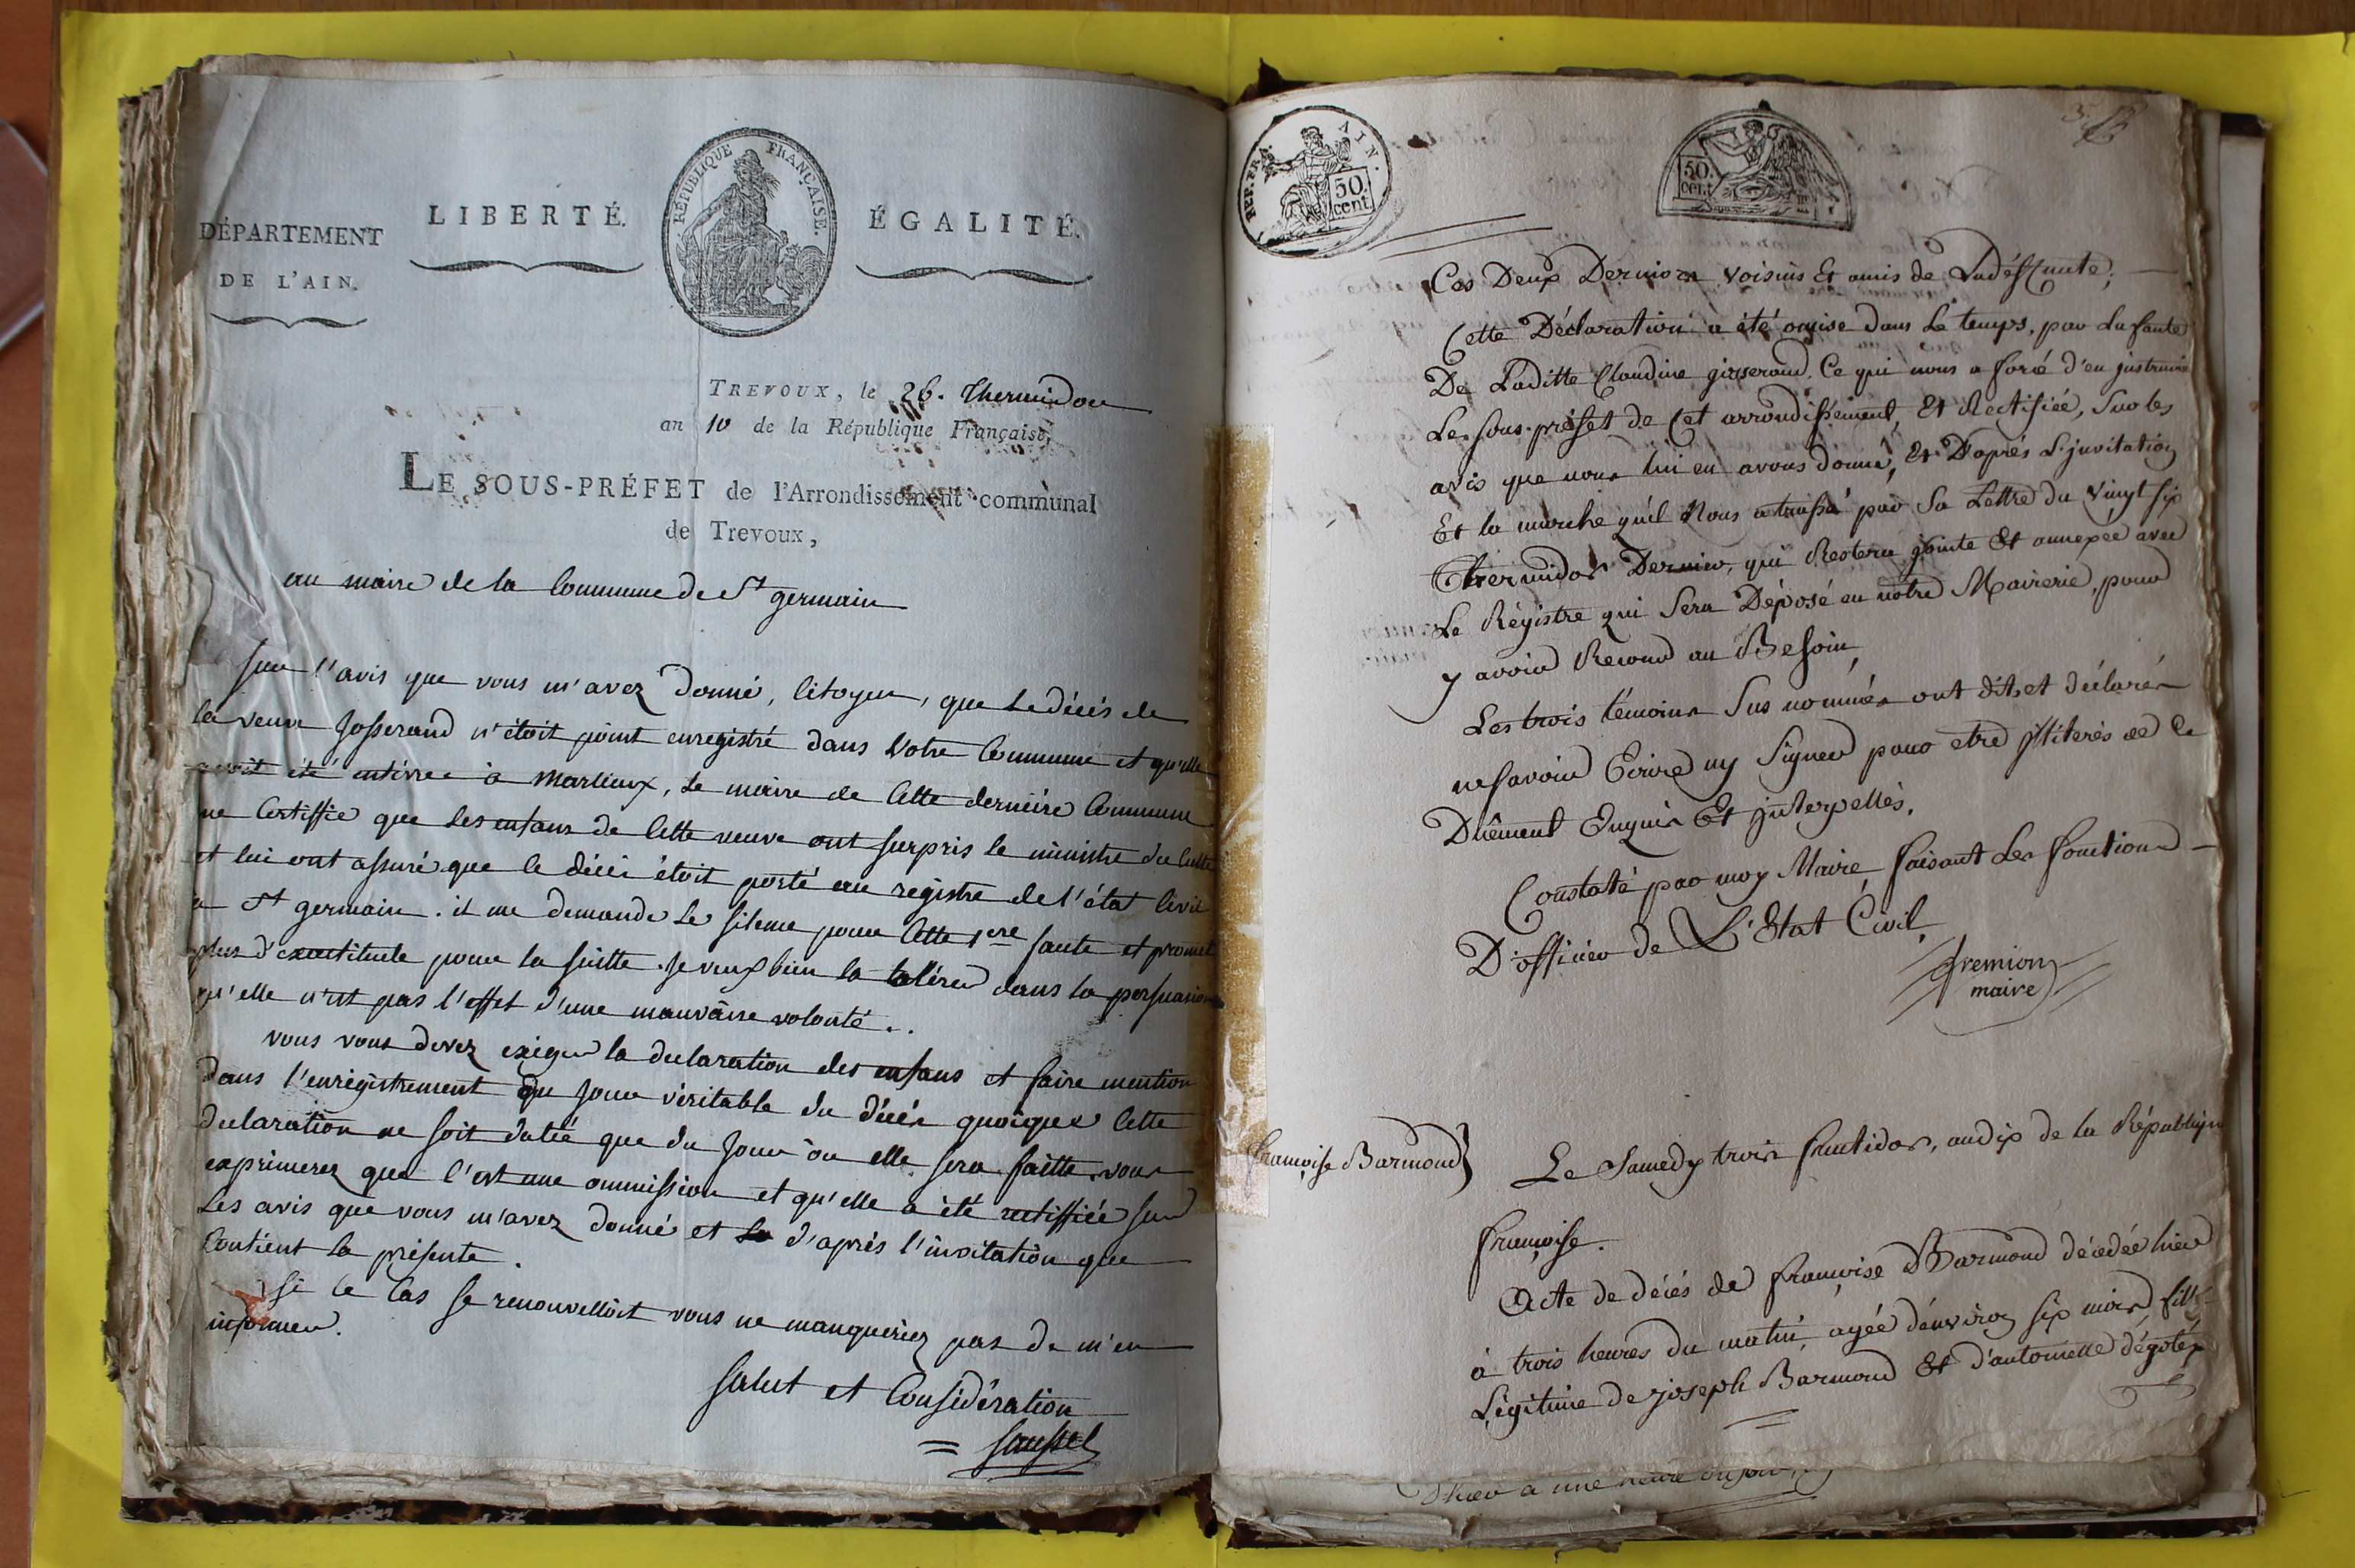 DÉPARTEMENT
DE L'AIN.
LIBERTÉ.
RÉPUBLIQUE FRANÇAISE.
ÉGALITÉ.
TREVOUX, le 26. Thermidor
an 10 de la République Française,
LE SOUS-PRÉFET de l'Arrondissement communal
de Trevoux,
au maire de la Commune de St germain
sur l'avis que vous m'avez donné, Citoyen, que le décés de
la veuve Josserand n'étoit point enregistré dans votre Commune et qu'elle
avoit été entérrée à Marlieux, le maire de Cette derniére Commune
me Certiffie que les enfans de Cette veuve ont surpris le ministre du Culte
et lui ont assuré que le décés étoit porté au registre de l'état Civil
à St germain. il me demande le silence pour Cette 1ere faute et promet
plus d'exactitude pour la suitte. je veux bien la tolérer dans la persuasion
qu'elle n'est pas l'effet d'une mauvaise volonté..
vous vous devez exiger la declaration des enfans et faire mention
dans l'enregistrement du jour véritable du décés quoique Cette
declaration ne soit datée que du jour où elle sera faitte. vous
exprimerez que C'est une ommission et qu'elle a été rectiffiée sur
les avis que vous m'avez donné et d'après l'invitation que
Contient la présente.
si ce Cas se renouvelloit vous ne manqueriez pas de m'en
informer.
Salut et Considération
REP. FRA. AIN.
50. cent
50. cent
Ces Deux Derniers voisins Et amis de Ladéffunte,
Cette Déclaration a été omise dans Le temps, par La faute
De Laditte Claudine josserand, Ce qui nous a forcé d'en jnstruire
Le sous-préfet de Cet arrondissement, Et Rectifiée, Sur les
avis que nous lui en avons donné, Et D'aprés L'jnvitation
Et la marche qu'il Nous a trassé par Sa Lettre du vingt six
Thermidor Dernier, qui Restera jointe Et annexée avec
Le Régistre qui Sera Déposé en notre Mairerie, pour
y avoir Recour au Besoin,
Les trois témoins Sus nommés ont dits et déclarés
ne savoir Ecrire ny Signer pour etre jlliterés de Ce
Dûement Enquis Et jnterpellés.
Constaté par moy Maire faisant Les fonctions
D'officier de L'Etat Civil,
gremion
maire
françoise Barmond
Le Samedy trois fructidor, an dix de la République
françoise.
Acte de décés de françoise Barmond décedée hier
à trois heures du matin, agée d'environ six mois, fille
Légitime de joseph Barmond Et d'antoinette dégotex
hier a une heure